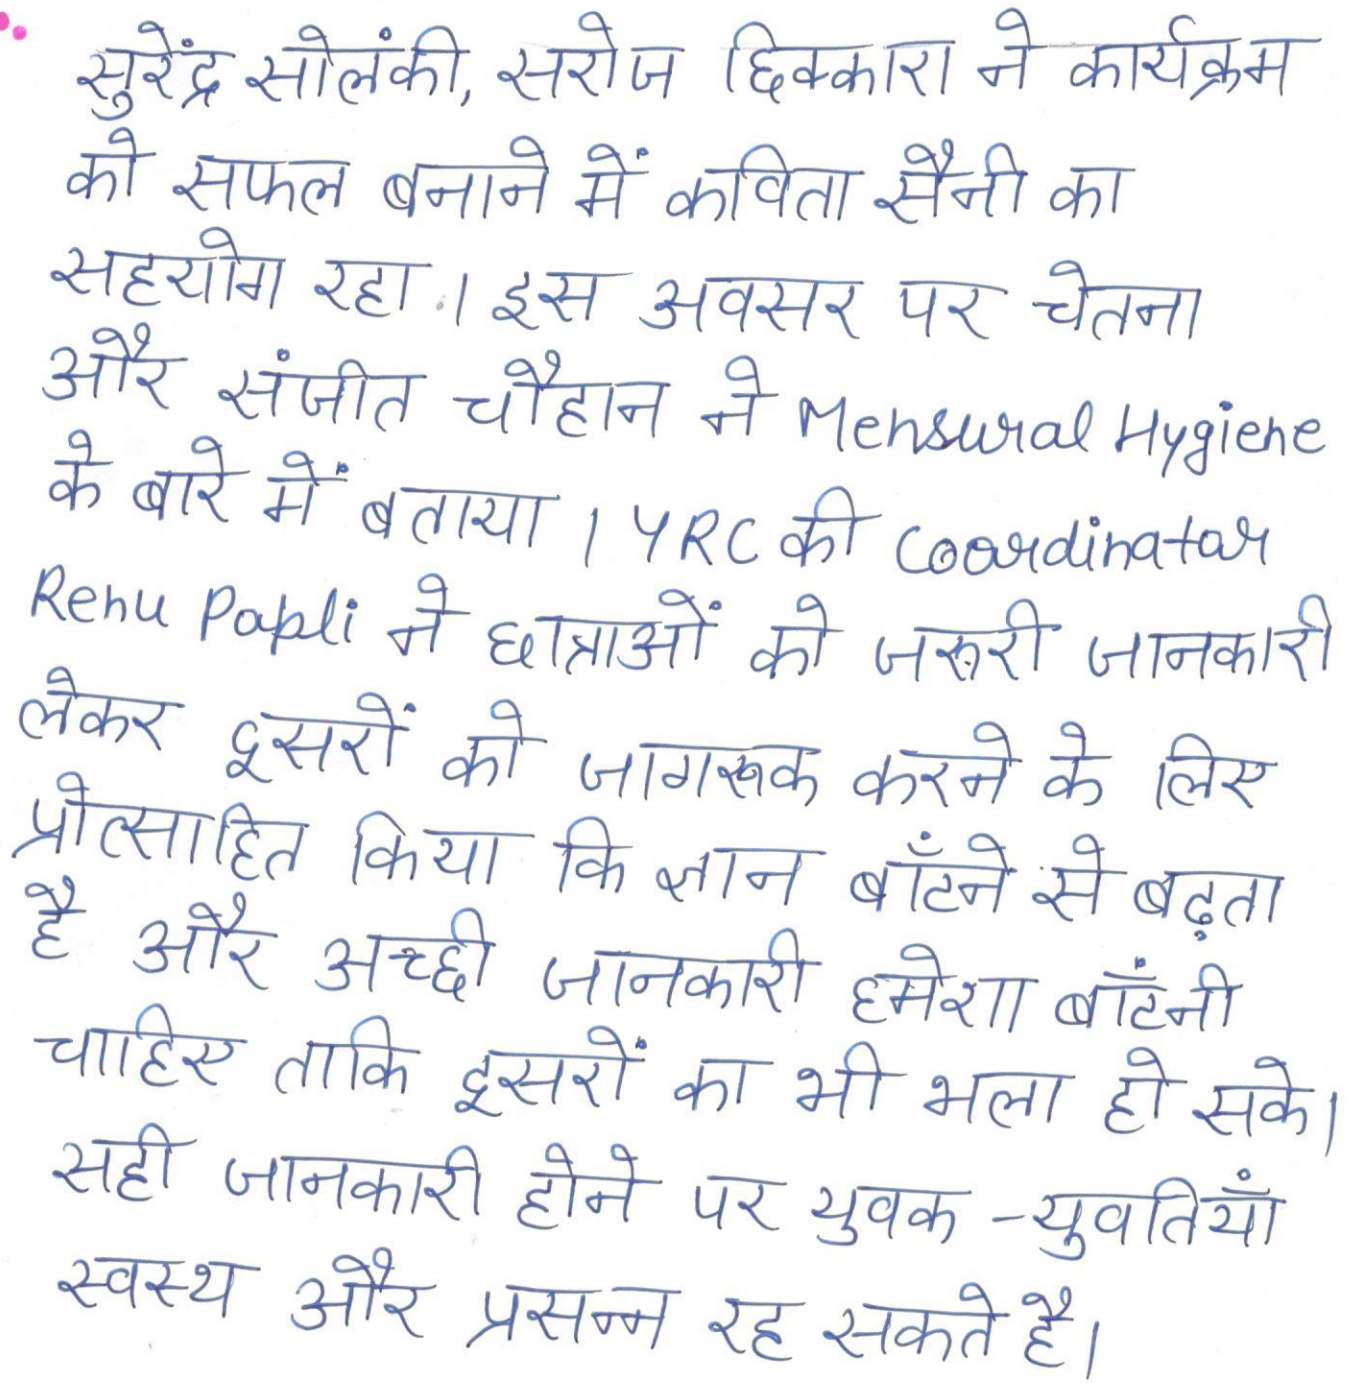 सुरेंद्र सोलंकी, सरोज छिक्कारा ने कार्यक्रम
को सफल बनाने में कविता सैनी का
सहयोग रहा । इस अवसर पर चेतना
और संजीत चौहान ने Mensural Hygiene
के बारे में बताया । YRC की Coordinator
Renu Papli ने छात्राओं को जरूरी जानकारी
लेकर दूसरों को जागरूक करने के लिए
प्रोत्साहित किया कि ज्ञान बाँटने से बढ़ता
है और अच्छी जानकारी हमेशा बाँटनी
चाहिए ताकि दूसरों का भी भला हो सके।
सही जानकारी होने पर युवक - युवतियाँ
स्वस्थ और प्रसन्न रह सकते है।